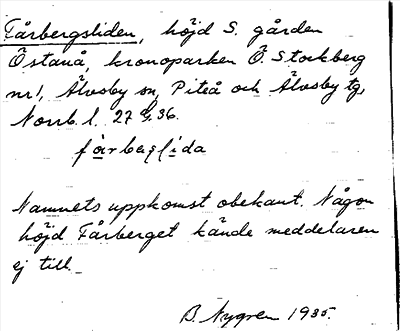 Fårbergsliden, höjd S. gården
Östanå, kronoparken Ö. Stockberg
nr 1, Älvsby sn, Piteå och Älvsby tg,
Norrb. l. 27 36.
fårbæslida
Namnets uppkomst obekant. Någon
höjd Fårberget kände meddelaren
ej till.
B. Nygren 1935.